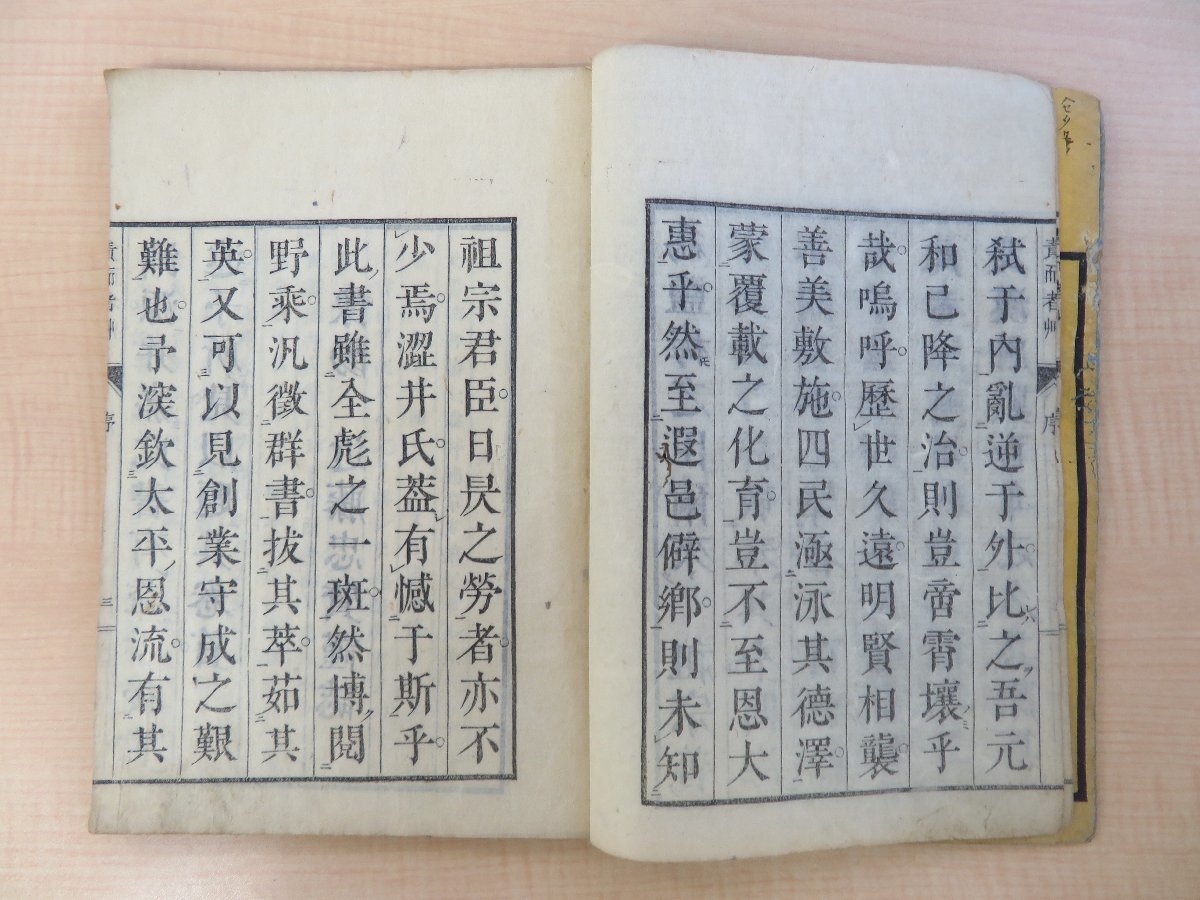 弒于內亂逆于外比之吾元
和已降之治則豈啻霄壤乎
哉嗚呼歷世久遠明賢相襲
善美敷施四民涵泳其德澤
蒙覆載之化育豈不至恩大
惠乎然至遐邑僻鄉則未知
祖宗君臣日昃之勞者亦不
少焉澀井氏蓋有憾于斯乎
此書雖全彪之一斑然博閱
野乘汎徵群書拔其萃茹其
英又可以見創業守成之艱
難也予深欽太平恩流有其
序
三